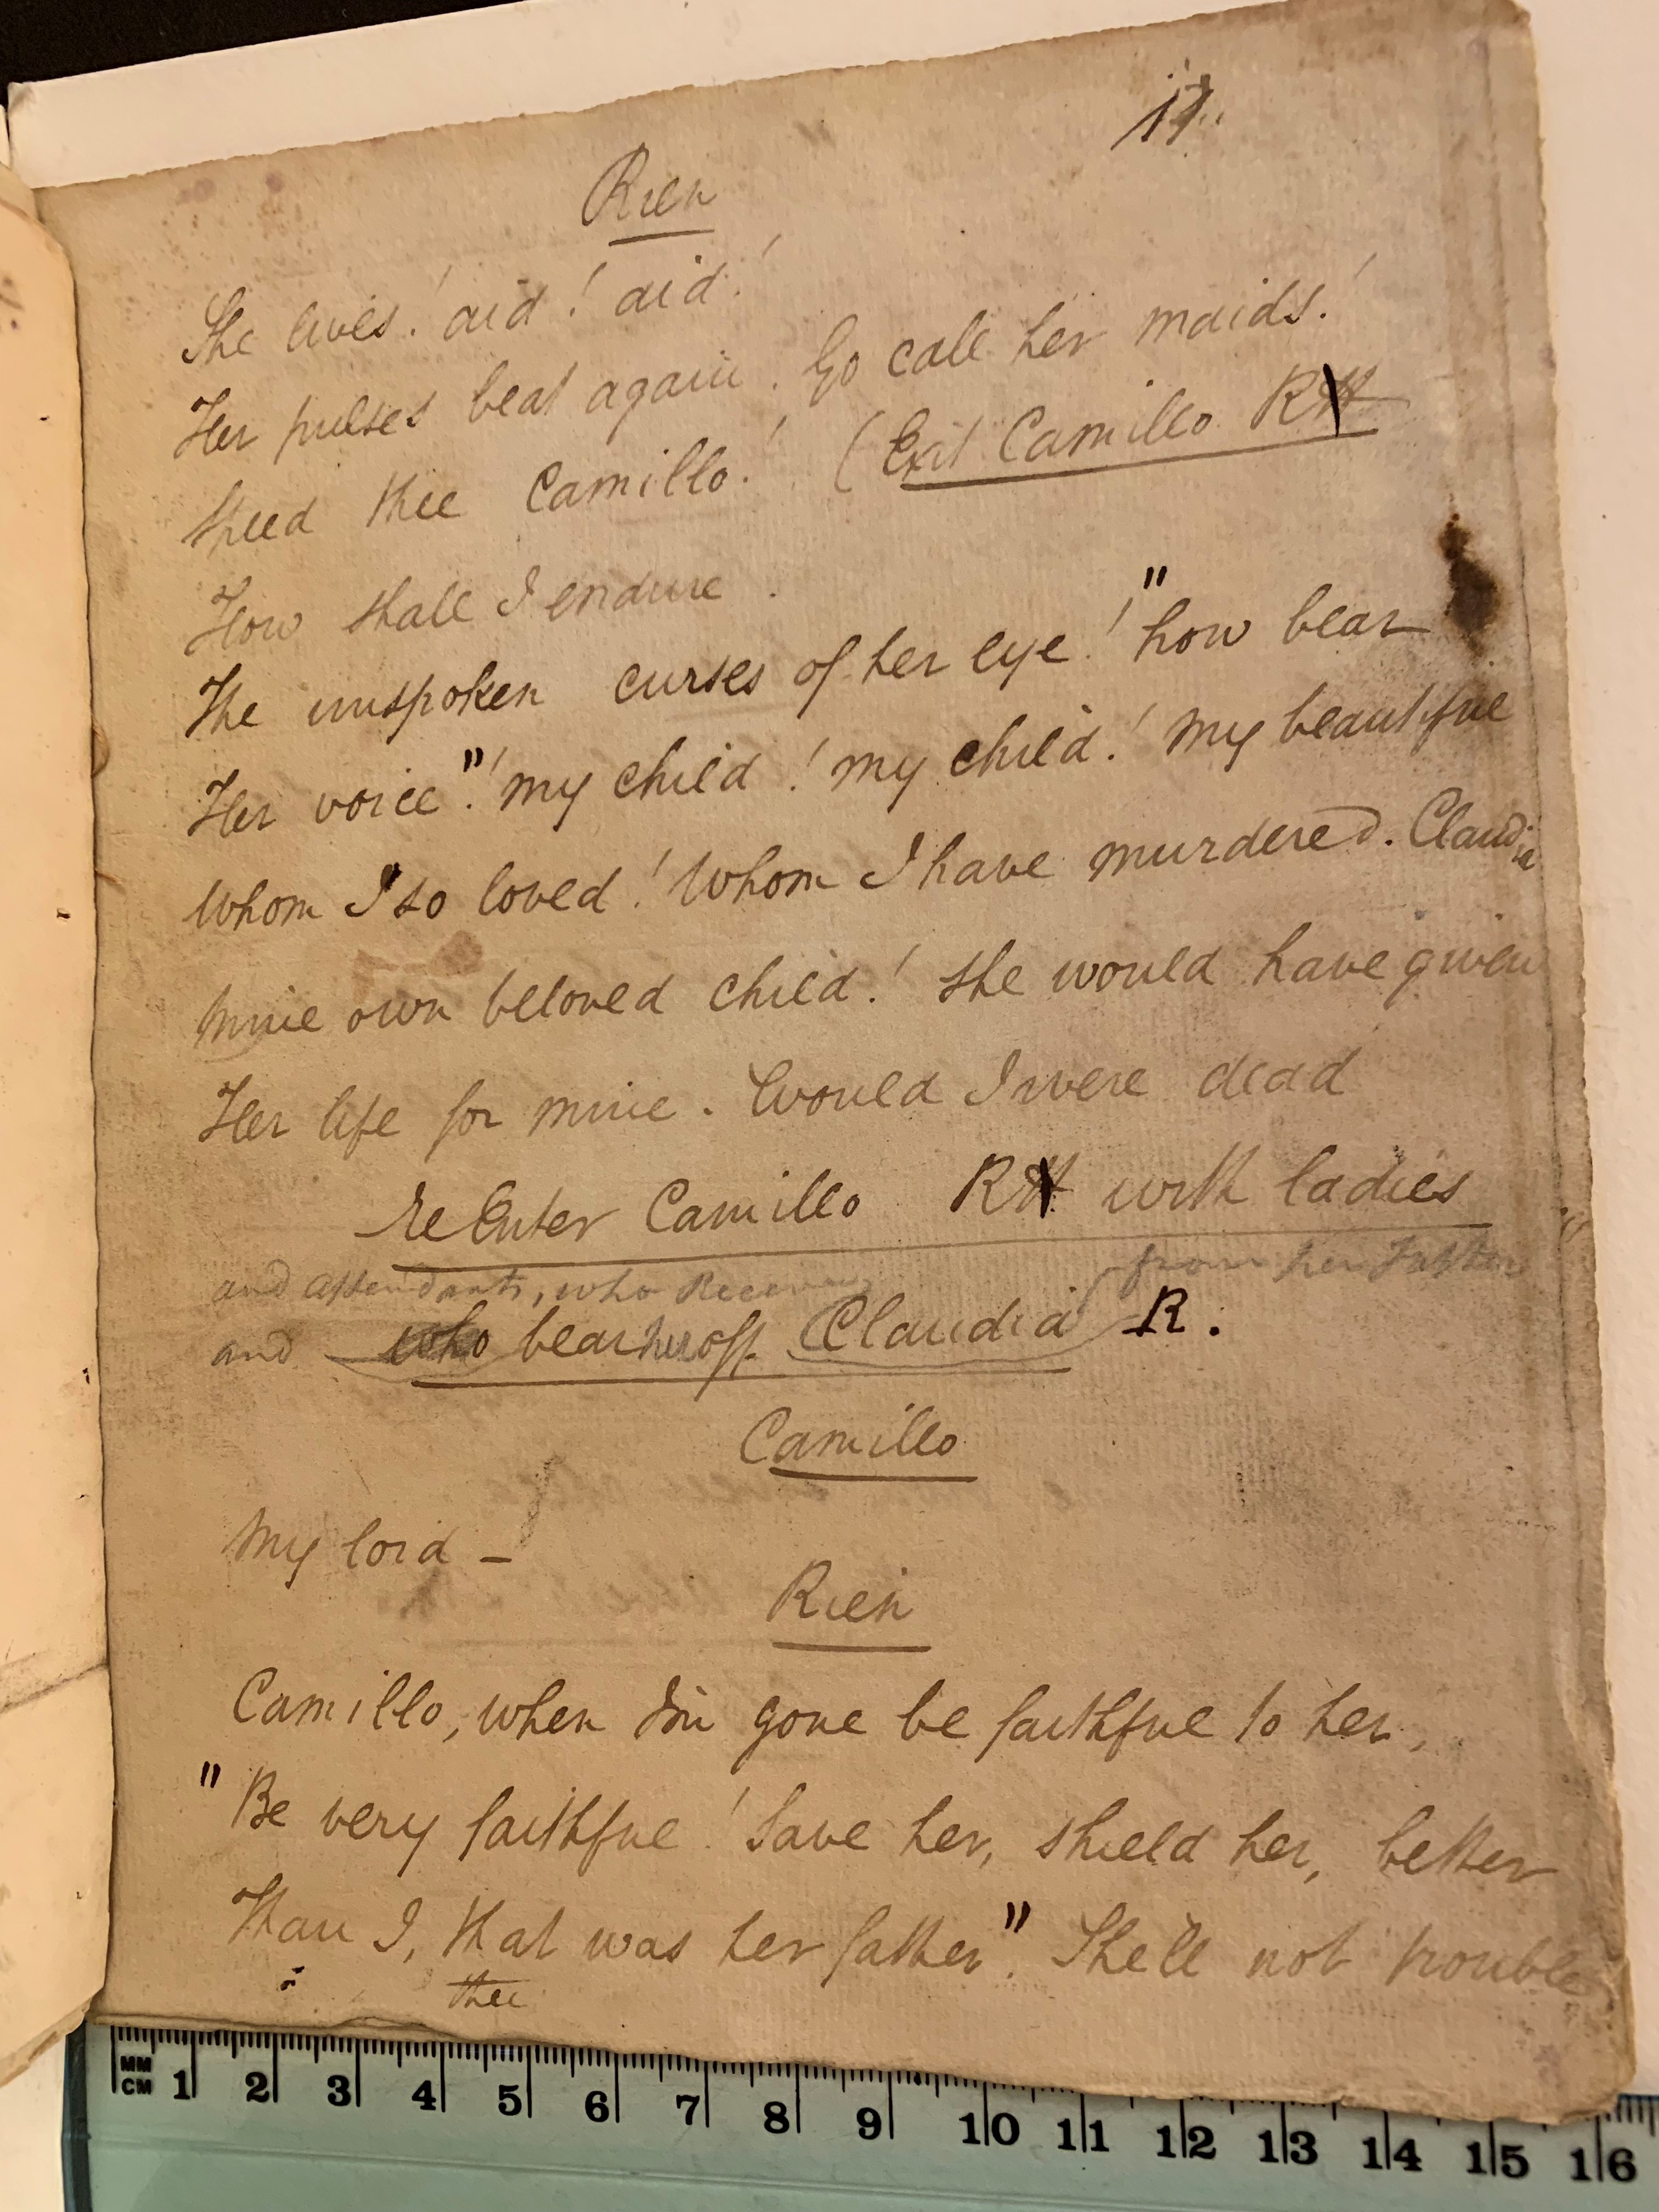 17
Rien
She lives! aid! aid!
Her pulses beat again. Go call her maids!
Speed thee Camillo! (Exit Camillo RH
How shall I endure.
The unspoken curses of her eye! "how bear
Her voice"! my child! my child! My beautiful
Whom I so loved! Whom I have murdered. Claudia
Mine own beloved child! She would have given
Her life for mine. Would I were dead
ReEnter Camillo RH with ladies
and attendants, who Receive from her Father
and who bear her off Claudia R.
Camillo
My lord –
Rien
Camillo, when I'm gone be faithful to her,
"Be very faithful! Save her, shield her, better
Than I, that was her father". She'll not trouble
thee
MM
CM 1 2 3 4 5 6 7 8 9 10 11 12 13 14 15 16